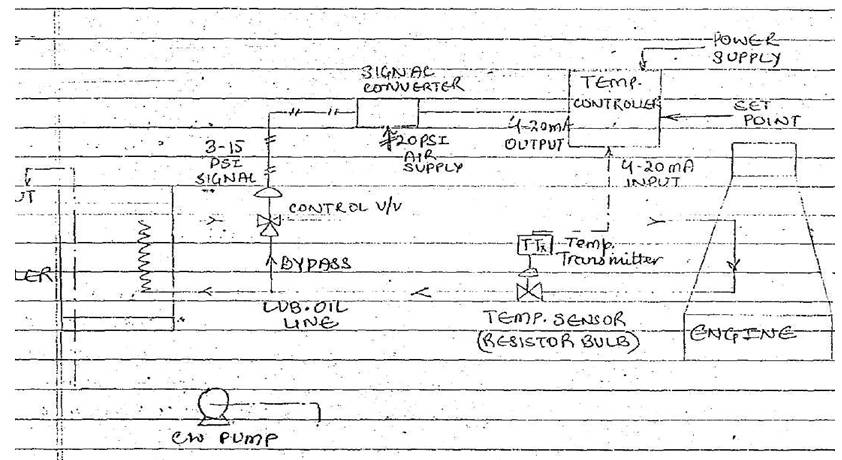 POWER
SUPPLY
SIGNAL
CONVERTER
TEMP.
CONTROLLER
SET
POINT
4-20mA
OUTPUT
20PSI
AIR
SUPPLY
3-15
PSI
SIGNAL
4-20mA
INPUT
UT
CONTROL V/V
TTx
Temp.
Transmitter
BYPASS
LER
LUB.OIL
LINE
TEMP. SENSOR
(RESISTOR BULB)
ENGINE
CW PUMP